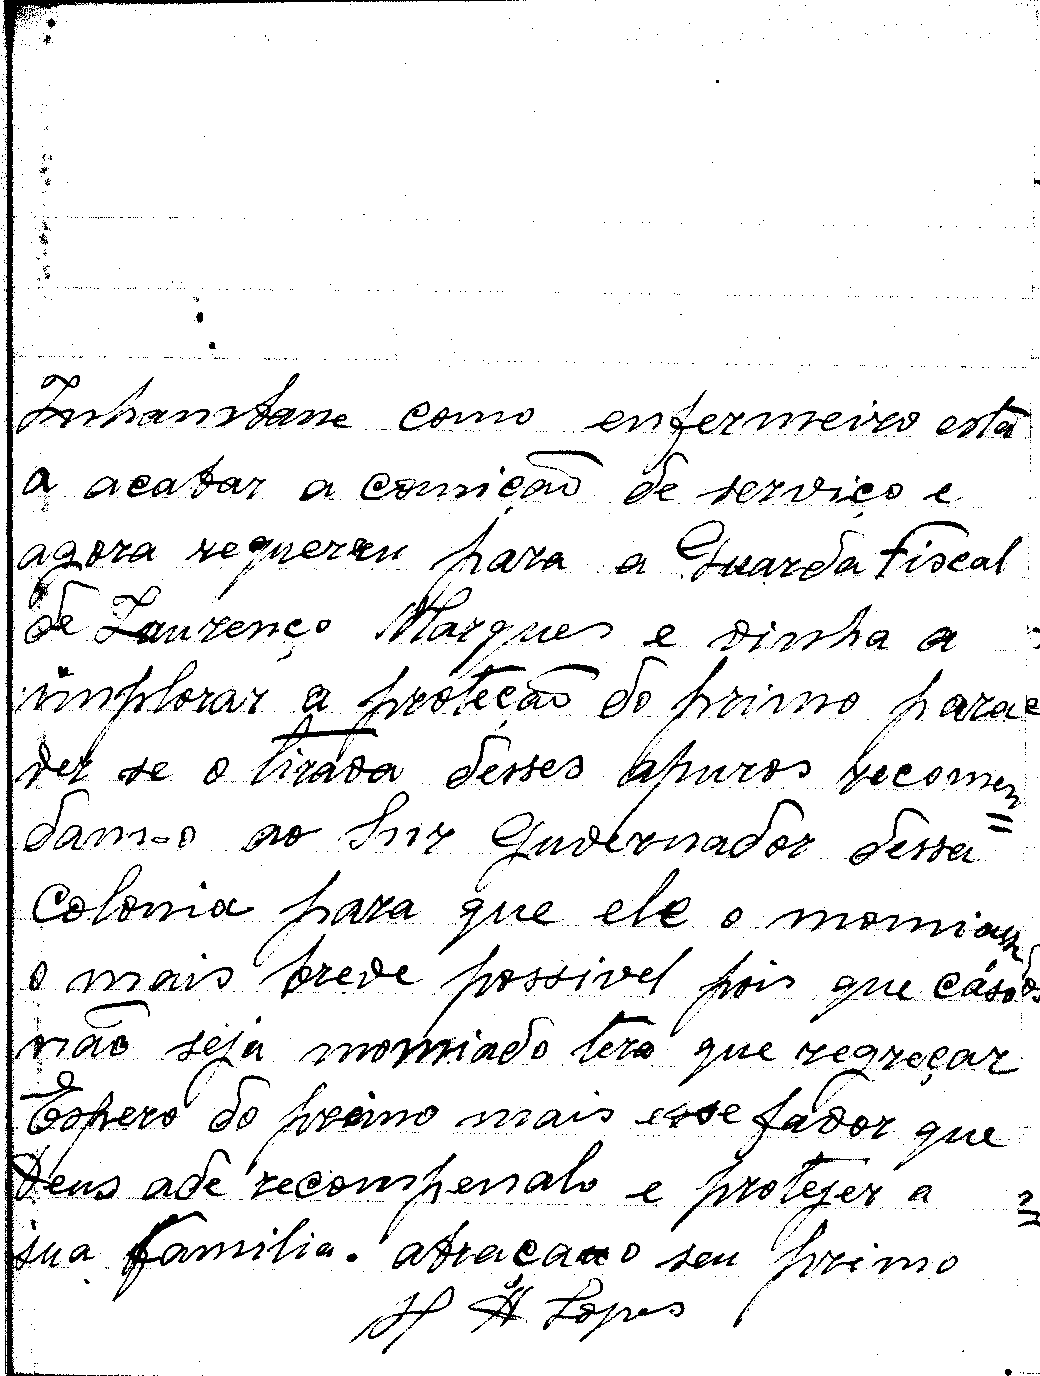 Inhambane como enfermeiro está
a acabar a comição de serviço e
agora requereu para a Guarda Fiscal
de Laurenço Marques e vinha a
implorar a proteção do primo para
ver se o tirava desses apuros recomen=
dam-o ao Snr Guvernador dessa
Colonia para que ele o nomiasse
o mais breve possivel pois que cáso
não seja nomiado tera que regreçar
Espero do primo mais esse favor que
Deus ade recompenalo e protejer a
sua familia. abraca-o seu primo
Lopes